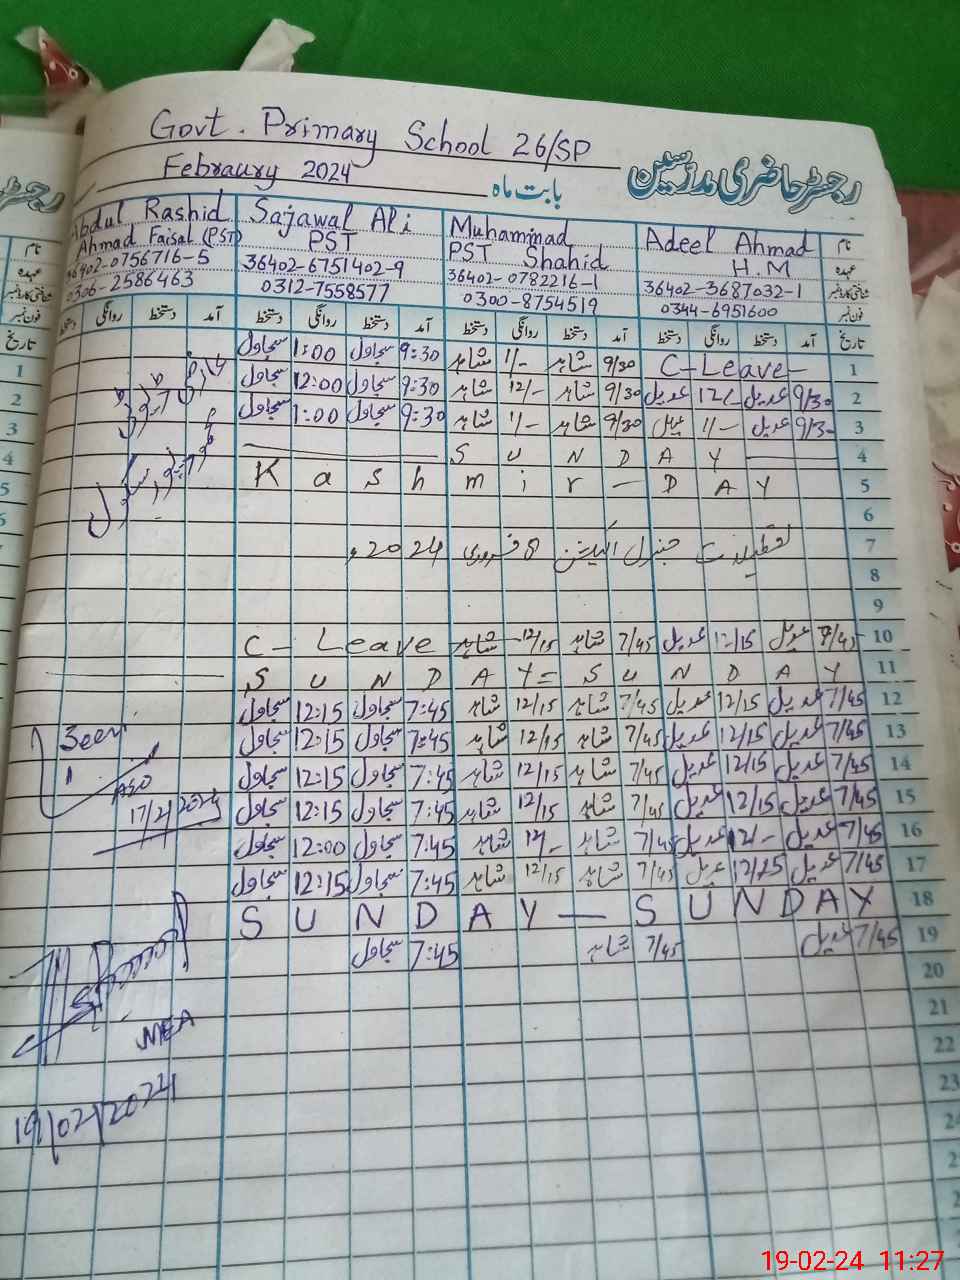 Govt. Primary School 26/SP
Febraury 2024 بابت ماہ رجسٹر حاضری مدرسین
Abdul Rashid Sajawal Ali Muhammad Adeel Ahmad نام
Ahmad Faisal (PST) PST PST Shahid H.M عہدہ
36402-0756716-5 36402-6751402-9 36402-0782216-1 36402-3687032-1 شناختی کارڈ نمبر
0306-2586463 0312-7558577 0300-8754519 0344-6951600 فون نمبر
دستخط روانگی دستخط آمد دستخط روانگی دستخط آمد دستخط روانگی دستخط آمد دستخط روانگی دستخط آمد تاریخ
سجاول 1:00 سجاول 9:30 شاہد 1/- شاہد 9/30 C-Leave- 1
سجاول 12:00 سجاول 9:30 شاہد 12/- شاہد 9/30 عدیل 12/- عدیل 9/30 2
سجاول 1:00 سجاول 9:30 شاہد 1/- شاہد 9/30 عدیل 1/- عدیل 9/30 3
SUNDAY 4
Kashmir - DAY 5
6
تعطیلات جنرل الیکشن 8 فروری 2024ء 7
8
9
C- Leave شاہد 12/15 شاہد 7/45 عدیل 12/15 عدیل 7/45 10
SUNDAY = SUNDAY 11
سجاول 12:15 سجاول 7:45 شاہد 12/15 شاہد 7/45 عدیل 12/15 عدیل 7/45 12
Seen سجاول 12:15 سجاول 7:45 شاہد 12/15 شاہد 7/45 عدیل 12/15 عدیل 7/45 13
سجاول 12:15 سجاول 7:45 شاہد 12/15 شاہد 7/45 عدیل 12/15 عدیل 7/45 14
17/2/2024 سجاول 12:15 سجاول 7:45 شاہد 12/15 شاہد 7/45 عدیل 12/15 عدیل 7/45 15
سجاول 12:00 سجاول 7:45 شاہد 12/- شاہد 7/45 عدیل 12/- عدیل 7/45 16
سجاول 12:15 سجاول 7:45 شاہد 12/15 شاہد 7/45 عدیل 12/15 عدیل 7/45 17
SUNDAY — SUNDAY 18
سجاول 7:45 شاہد 7/45 عدیل 7/45 19
20
21
MEA 22
23
19/02/2024
19-02-24 11:27